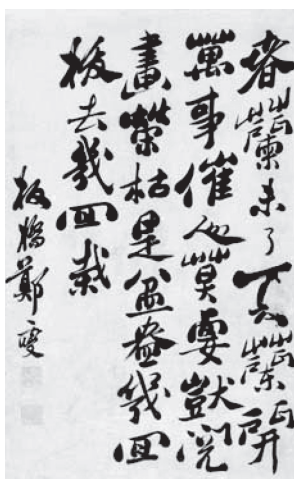 春蘭未了夏蘭開
萬事催人莫要獃閱
盡榮枯是盆盎幾回
拔去幾回栽
板橋鄭燮